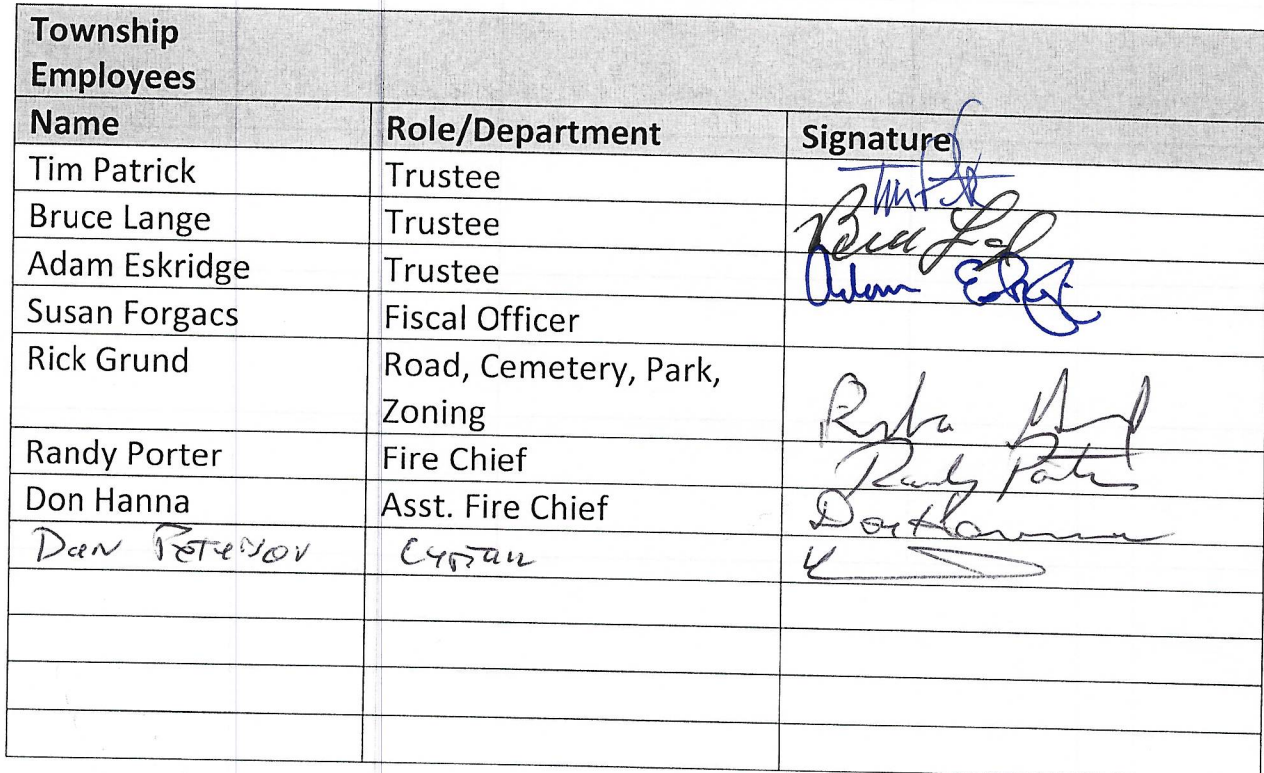 Township
Employees
Name Role/Department Signature
Tim Patrick Trustee
Bruce Lange Trustee
Adam Eskridge Trustee Adam
Susan Forgacs Fiscal Officer
Rick Grund Road, Cemetery, Park,
Zoning
Randy Porter Fire Chief Randy Porter
Don Hanna Asst. Fire Chief Don Hanna
Dan Peterson